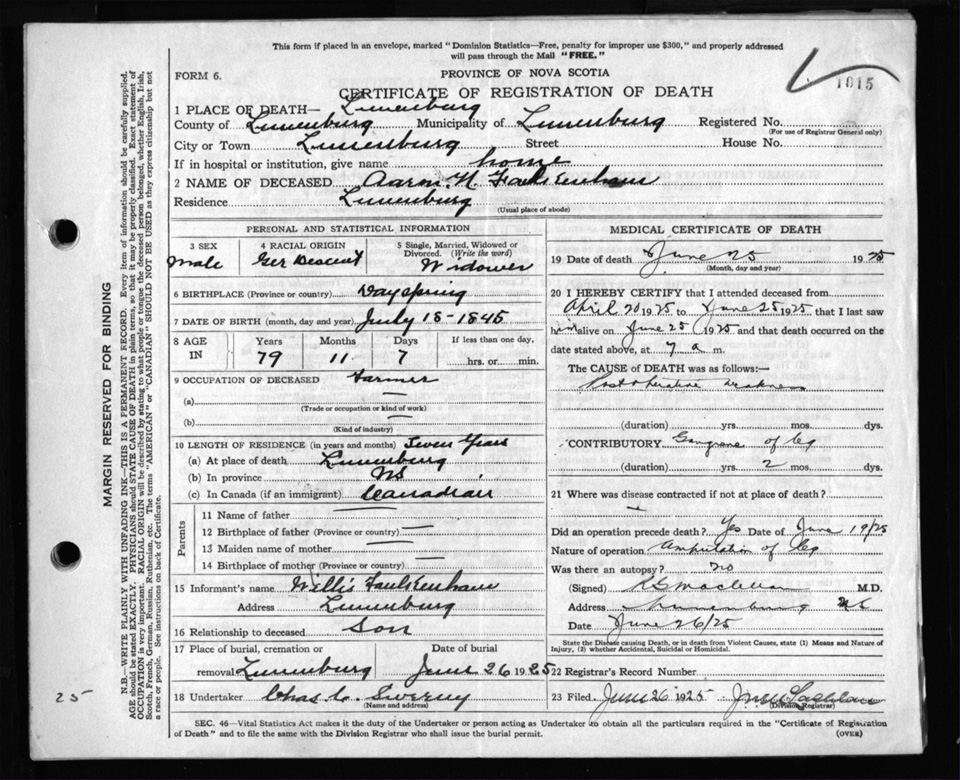 This form if placed in an envelope, marked "Dominion Statistics—Free, penalty for improper use $300," and properly addressed
will pass through the Mail "FREE."
FORM 6.
PROVINCE OF NOVA SCOTIA
1015
CERTIFICATE OF REGISTRATION OF DEATH
1 PLACE OF DEATH— Lunenburg
County of Lunenburg Municipality of Lunenburg Registered No.
(For use of Registrar General only)
City or Town Lunenburg Street House No.
If in hospital or institution, give name home
2 NAME OF DECEASED Aaron N Faulkenham
Residence Lunenburg
(Usual place of abode)
PERSONAL AND STATISTICAL INFORMATION
3 SEX 4 RACIAL ORIGIN 5 Single, Married, Widowed or
Divorced. (Write the word)
Male Ger Descent Widower
6 BIRTHPLACE (Province or country) Dayspring
7 DATE OF BIRTH (month, day and year) July 18-1845
8 AGE Years Months Days If less than one day,
IN 79 11 7 hrs. or min.
9 OCCUPATION OF DECEASED Farmer
(a) —
(Trade or occupation or kind of work)
(b) —
(Kind of industry)
10 LENGTH OF RESIDENCE (in years and months) Seven Years
(a) At place of death Lunenburg
(b) In province NS
(c) In Canada (if an immigrant) Canadian
Parents
11 Name of father —
12 Birthplace of father (Province or country) —
13 Maiden name of mother —
14 Birthplace of mother (Province or country) —
15 Informant's name Willis Faulkenham
Address Lunenburg
16 Relationship to deceased Son
17 Place of burial, cremation or Date of burial
removal Lunenburg June 26 1925
18 Undertaker Chas C. Sweeny
(Name and address)
MEDICAL CERTIFICATE OF DEATH
19 Date of death June 25 1925
(Month, day and year)
20 I HEREBY CERTIFY that I attended deceased from
April 20 1925 to June 25 1925 that I last saw
him alive on June 25 1925 and that death occurred on
date stated above, at 7 a m.
The CAUSE of DEATH was as follows:—
Post operative weakness
(duration) yrs. mos. dys.
CONTRIBUTORY Gangrene of leg
(duration) yrs. 2 mos. dys.
21 Where was disease contracted if not at place of death?
—
Did an operation precede death? Yes Date of June 19/25
Nature of operation Amputation of leg
Was there an autopsy? no
(Signed) M.D.
Address Lunenburg NS
Date June 26/25
State the Disease causing Death, or in death from Violent Causes, state (1) Means and Nature of
Injury, (2) whether Accidental, Suicidal or Homicidal.
22 Registrar's Record Number
23 Filed, June 26 1925
(Division Registrar)
SEC. 46—Vital Statistics Act makes it the duty of the Undertaker or person acting as Undertaker to obtain all the particulars required in the "Certificate of Registration
of Death" and to file the same with the Division Registrar who shall issue the burial permit.
(OVER)
MARGIN RESERVED FOR BINDING
N.B.—WRITE PLAINLY WITH UNFADING INK—THIS IS A PERMANENT RECORD. Every item of information should be carefully supplied.
AGE should be stated EXACTLY. PHYSICIANS should STATE CAUSE OF DEATH in plain terms, so that it may be properly classified. Exact statement of
OCCUPATION is very important. RACIAL ORIGIN will be described by stating to what people or tongue the deceased person belonged, whether English, Irish,
Scotch, French, German, Russian, Ruthenian, etc. The terms "AMERICAN" or "CANADIAN" SHOULD NOT BE USED as they express citizenship but not
a race or people. See instructions on back of Certificate.
25